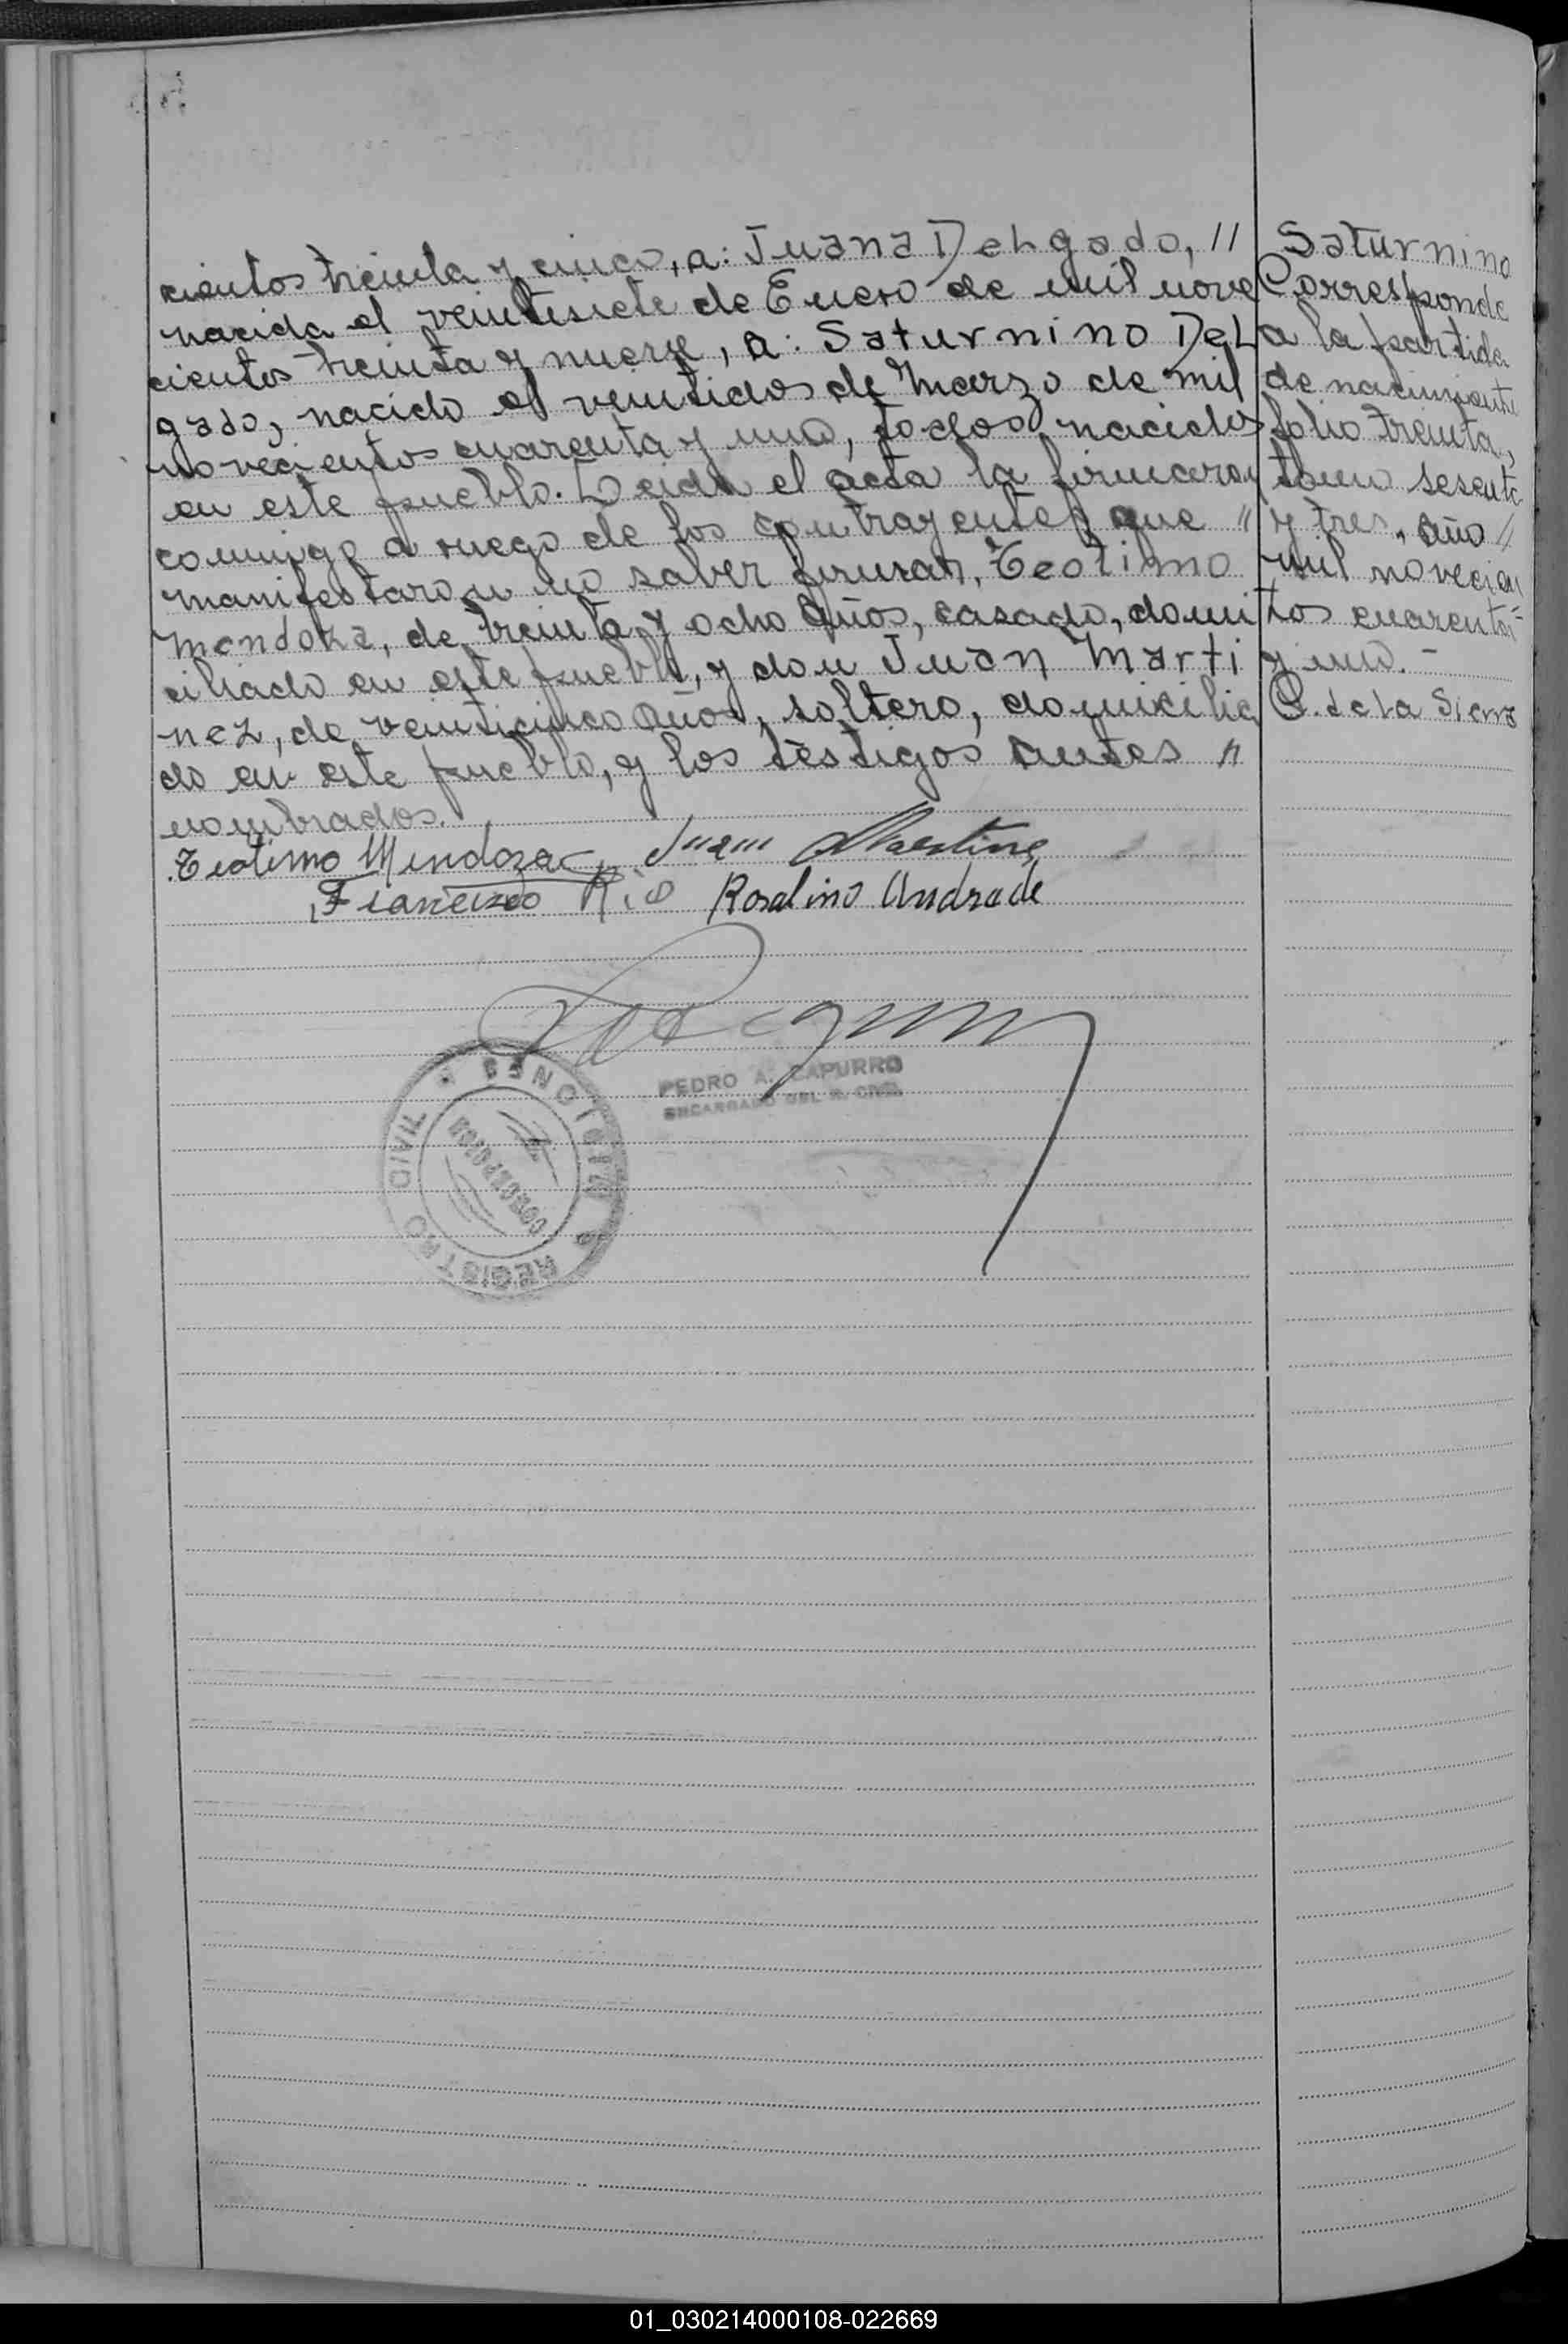 cientos treinta y cinco, a: Juana Delgado, //
nacida el veintisiete de Enero de mil nove
cientos treinta y nueve, a: Saturnino Del
gado, nacido el veintidos de Marzo de mil
novecientos cuarenta y uno, todos nacidos
en este pueblo. Leida el acta la firmaron
conmigo a ruego de los contrayentes que //
manifestaron no saber firmar, Teotimo
Mendoza, de treinta y ocho años, casado, domi
ciliado en este pueblo, y don Juan Marti
nez, de veinticinco años, soltero, domicilia
do en este pueblo, y los testigos antes //
nombrados.
Teotimo Mendoza Juan Martinez
Francisco Rio Rosalino Andrade
PEDRO A. CAPURRO
ENCARGADO DEL R. CIVIL
REGISTRO CIVIL
MISIONES
Saturnino
Corresponde
a la partida
de nacimiento
folio treinta,
tomo sesenta
y tres, año //
mil novecien
tos cuarenta
y uno.-
P. de la Sierra
01_030214000108-022669